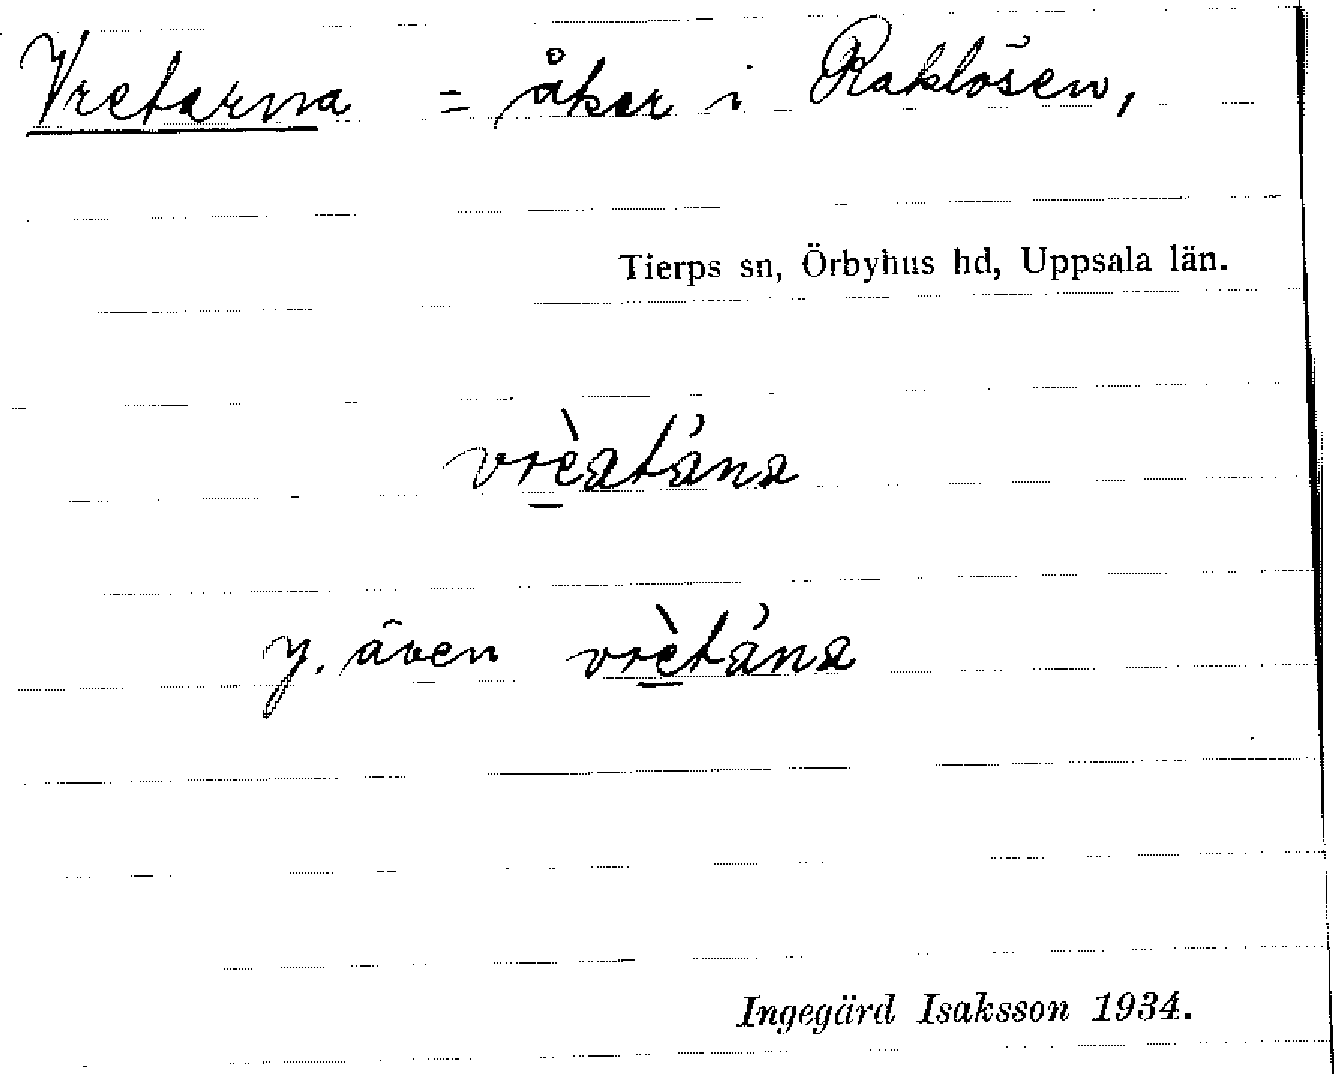 Vretarna = åker i Raklösen,
Tierps sn, Örbyhus hd, Uppsala län.
vrèatána
y. även vrètána
Ingegärd Isaksson 1934.